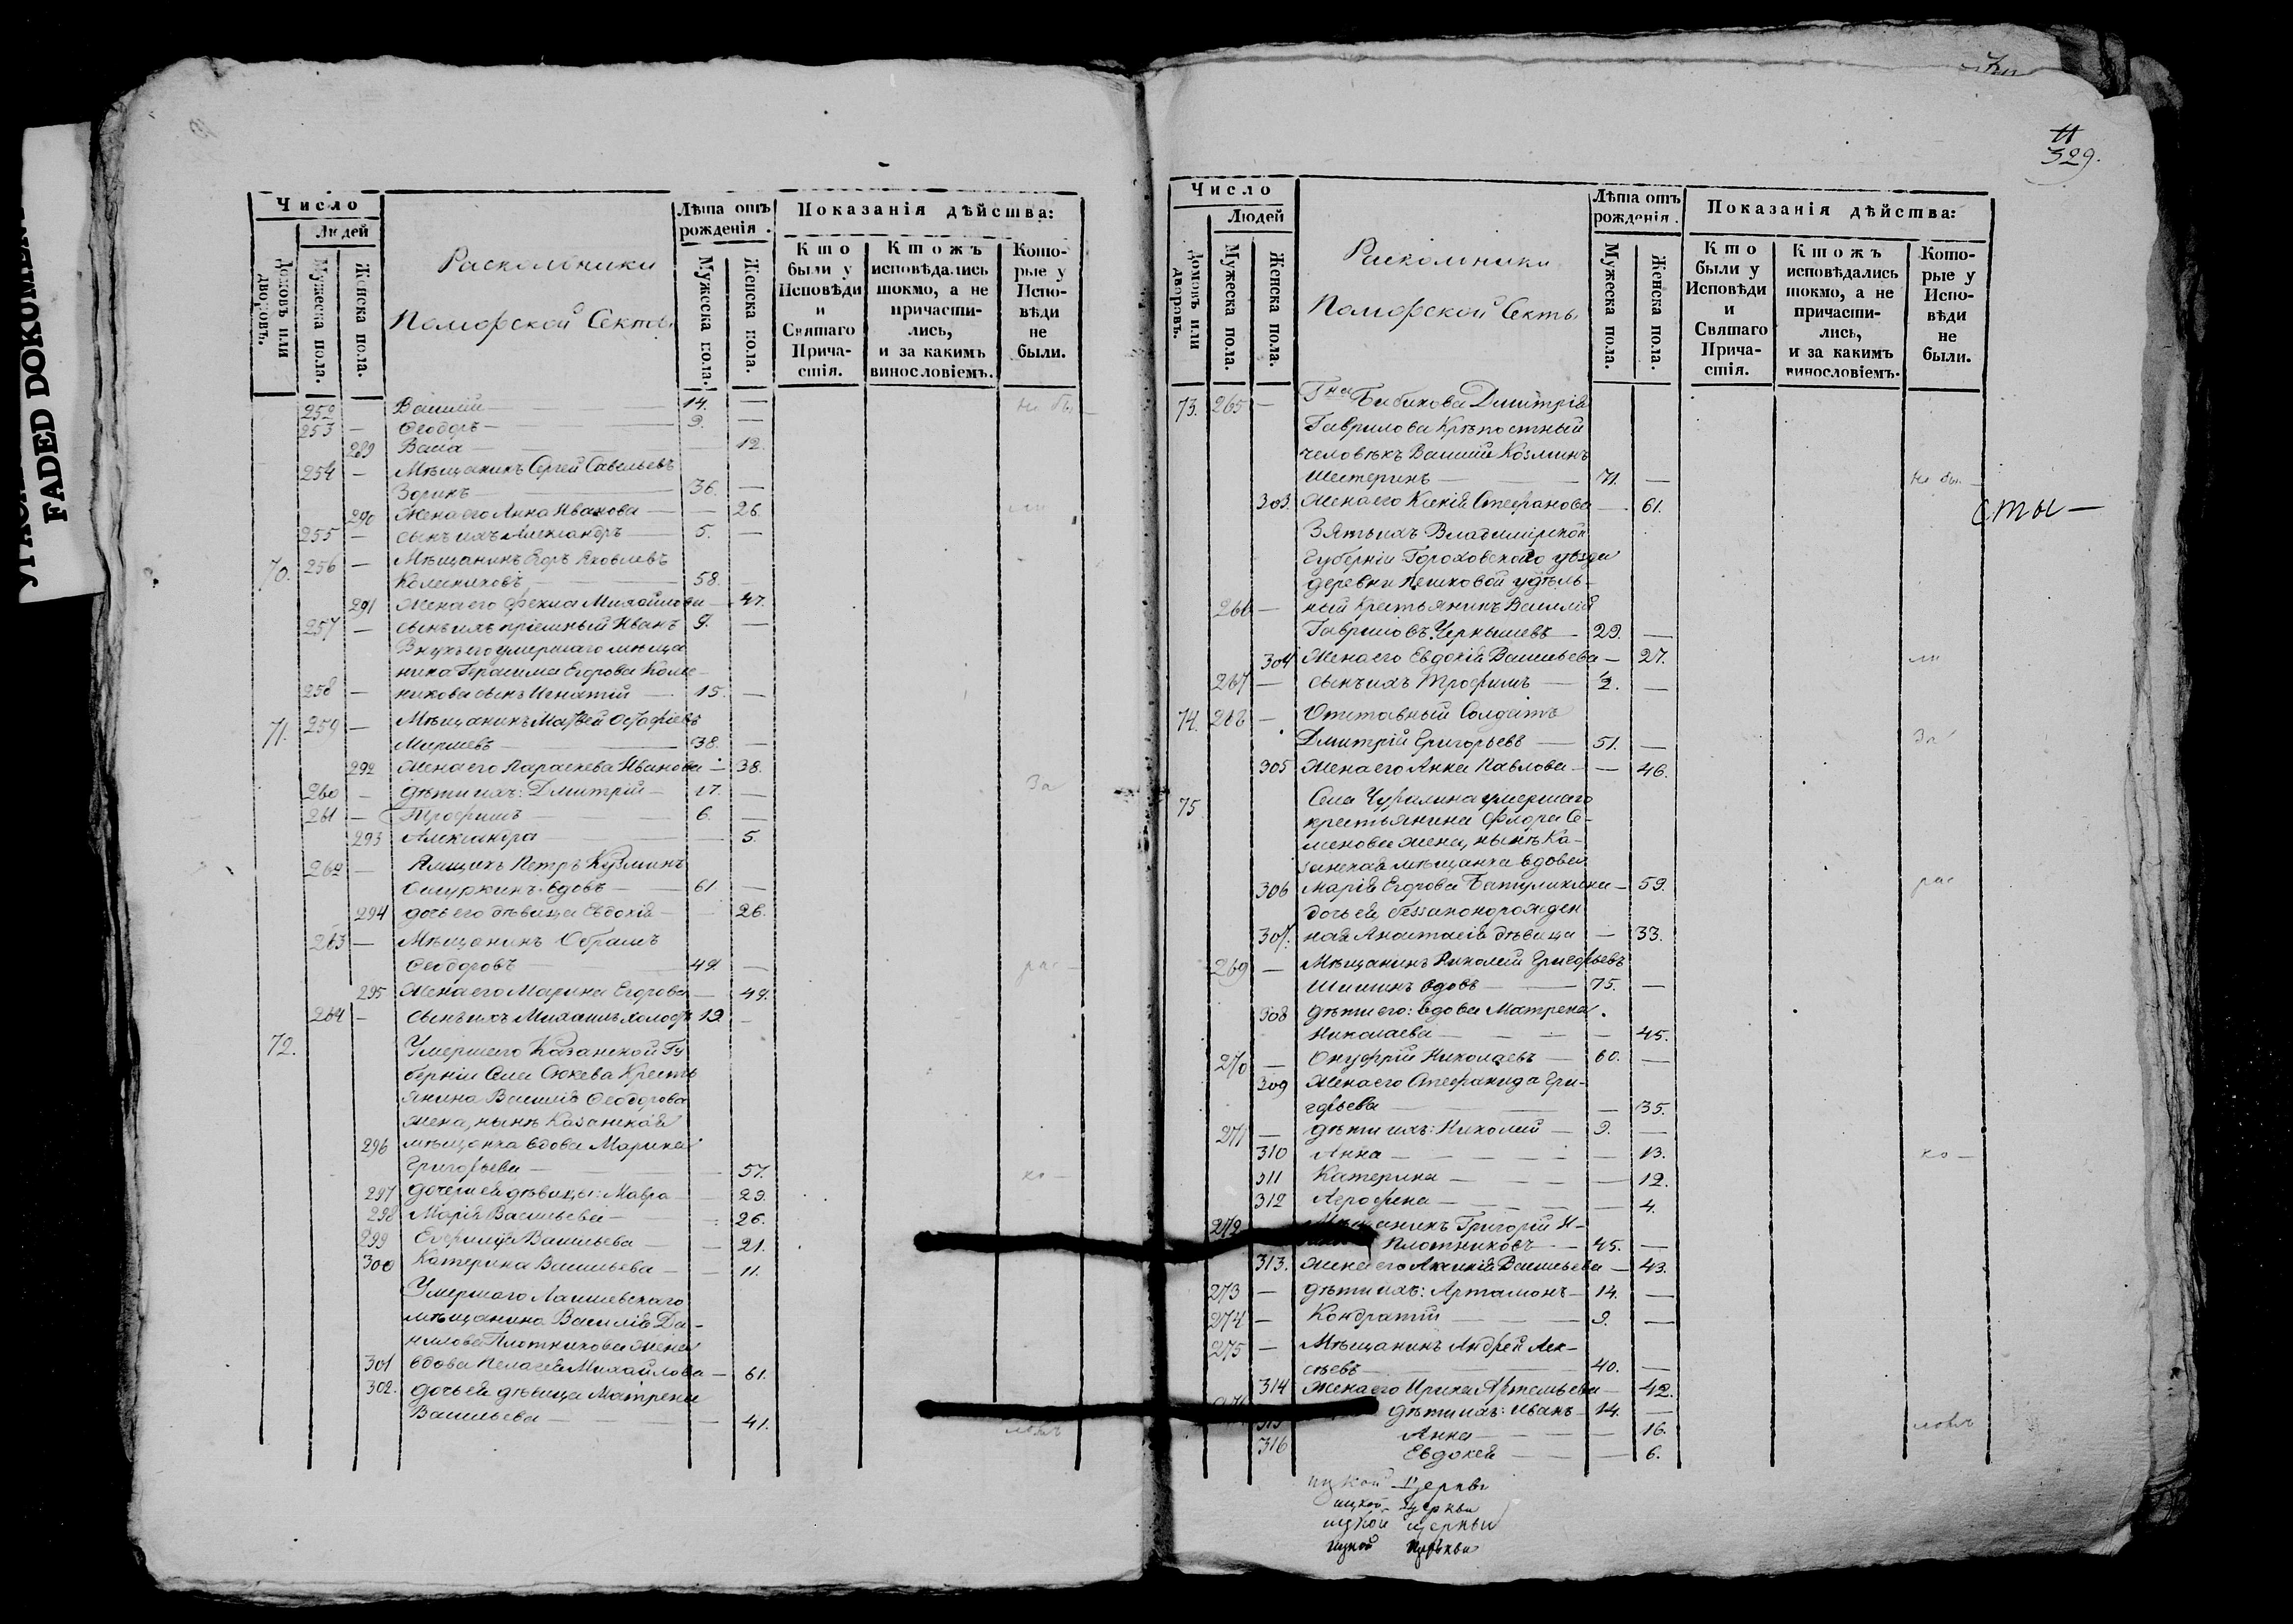 FADED DOKUMENT
Число
Людей
Домовъ или дворовъ.
Мужеска пола.
Женска пола.
Раскольники
Поморской Секты
Лѣта отъ рожденія.
Мужеска пола.
Женска пола.
Показанія дѣйства:
Кто были у Исповѣди и Святаго Причастія.
Ктожъ исповѣдались токмо, а не причастились, и за какимъ винословіемъ.
Которые у Исповѣди не были.
252 Василій — 14. — не бы
253 — Ѳеодоръ — 9. —
289 Васса — 12.
254 — Мѣщанинъ Сергей Савельевъ
Зоринъ — 36. —
290 Жена его Анна Иванова — 26. ли
255 — сынъ ихъ Александръ — 5. —
70. 256 — Мѣщанинъ Егоръ Яковлевъ
Колесниковъ — 58. —
291 Жена его Фекла Михайлова — 47.
257 — сынъ ихъ пріемный Иванъ 9. —
Внукъ его умершаго мѣща
нина Герасима Егорова Колес-
258 — никова сынъ Игнатій — 15. —
71. 259 — Мѣщанинъ Матвей Остафіевъ
38. —
292 Жена его Параскева Иванова — 38.
260 — дѣти ихъ: Дмитрій — 17. — За
261 — Трофимъ — 6. —
293 Александра — 5.
262 — Ямщикъ Петръ Кузминъ
вдовъ — 61. —
294 дочь его дѣвица Евдокія — 26.
263 — Мѣщанинъ Абрамъ
Ѳеодоровъ — 49. — рас
295 Жена его Марина Егорова — 49.
264 — сынъ ихъ Михаилъ холостъ 19 —
72. Умершаго Казанской Гу
берніи Села Сюкева Кресть
янина Василія Ѳеодорова
жена, нынѣ Казанская
296 мѣщанка вдова Марина
Григорьева — 57. ко —
297 дочери ей дѣвицы: Мавра — 29.
298 Марія Васильева — 26.
299 Васильева — 21.
300 Катерина Васильева — 11.
Умершаго Лаишевскаго
мѣщанина Василія Да-
нилова Плотникова жена
301 вдова Пелагея Михайлова — 61.
302. дочь ей дѣвица Матрена
Васильева — 41.
ловъ
11
329.
Число
Людей
Домовъ или дворовъ.
Мужеска пола.
Женска пола.
Раскольники
Поморской Секты
Лѣта отъ рожденія.
Мужеска пола.
Женска пола.
Показанія дѣйства:
Кто были у Исповѣди и Святаго Причастія.
Ктожъ исповѣдались токмо, а не причастились, и за какимъ винословіемъ.
Которые у Исповѣди не были.
73. 265 — Гна Бибикова Дмитрія
Гаврилова Крѣпостный
человѣкъ Василій Козминъ
Шестеринъ — 71. — не бы
303. Жена его Ксенія Стефанова — 61.
сты —
Зять ихъ Владимірской
Губерніи Гороховскаго уѣзда
деревни Пешковой удѣль-
266 — ный Крестьянинъ Василій
Гавриловъ Чернышевъ — 29. —
304 Жена его Евдокія Васильева — 27. ли
267 — сынъ ихъ Трофимъ — 2. —
74. 268 — Отставный Солдатъ
Дмитрій Григорьевъ — 51. — За
305 Жена его Анна Павлова — 46.
75 Села Чурилина умершаго
крестьянина Флора Се-
менова жена, нынѣ Ка-
занская мѣщанка вдова
306 Марія Егорова — 59. рас
дочь ей, беззаконорожден
307. ная Анастасія дѣвица — 33.
269 — Мѣщанинъ Николай Григорьевъ
Шишинъ вдовъ — 75. —
308 дѣти его: вдова Матрена
Николаева — 45.
270 — Онуфрій Николаевъ — 60. —
309 Жена его Стефанида Гри-
горьева — 35.
271 — дѣти ихъ: Николай — 9. —
310 Анна — 13. ко —
311 Катерина — 12.
312 Агрофена — 4.
272 Мѣщанинъ Григорій И-
Плотниковъ — 45. —
313. Жена его Васильева — 43.
273 — дѣти ихъ: Артамонъ — 14. —
274 — Кондратій — 9. —
275 — Мѣщанинъ Андрей Лек-
сѣевъ — 40. —
314 Жена его Ирина Артемьева — 42.
дѣти ихъ: Иванъ — 14. —
315 Анна — 16. ловъ
316 Евдокея — 6.
ицкой Церкви
ицкой Церкви
ицкой церкви
ицкой церкви